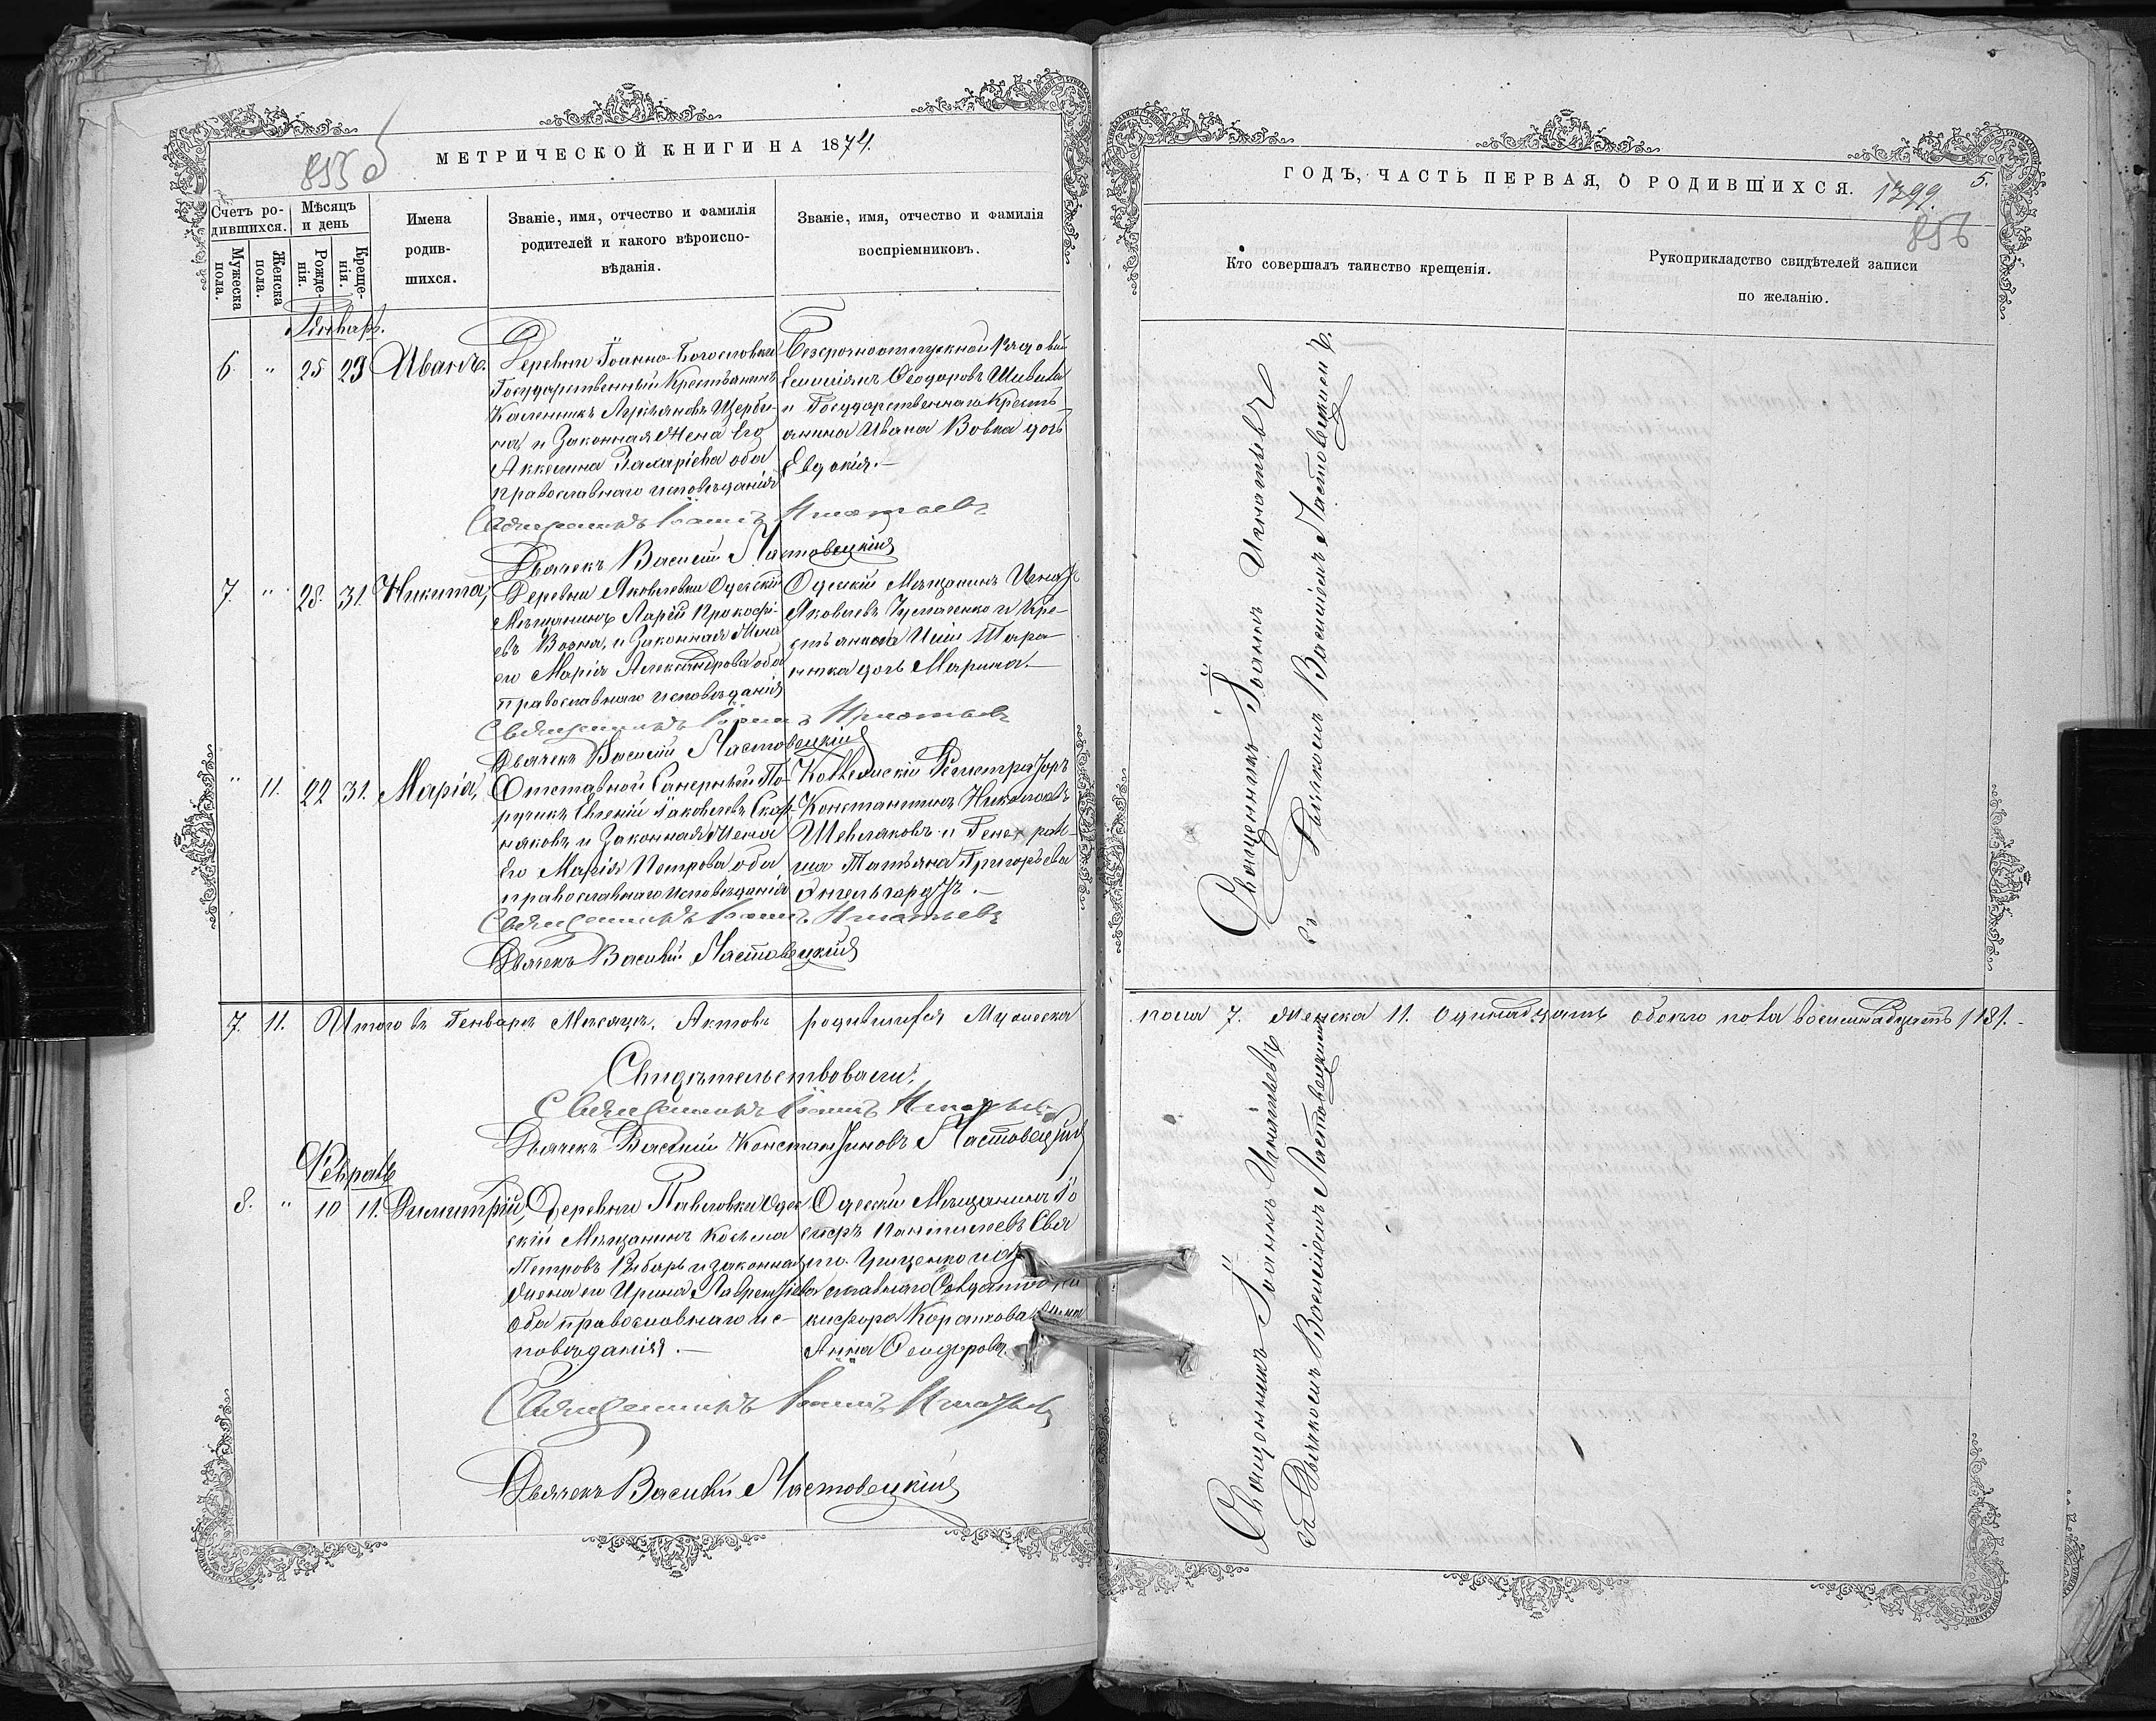 855 б
МЕТРИЧЕСКОЙ КНИГИ НА 1874.
Счетъ ро-
дившихся.
Мѣсяцъ
и день
Мужеска
пола.
Женска
пола.
Рожде-
нія.
Креще-
нія.
Имена
родив-
шихся.
Званіе, имя, отчество и фамилія
родителей и какого вѣроиспо-
вѣданія.
Званіе, имя, отчество и фамилія
воспріемниковъ.
Январь.
6. " 25 29 Иванъ.
Деревни Іоанно-Богословки
Государственный Крестьянинъ
Каленникъ Лукьяновъ Щерби-
на и Законная Жена Его
Аккелина Захаріева оба
православнаго исповѣданія
Безсрочноотпускной Рядовой
Емиліянъ Ѳеодоровъ
и Государственнаго Кресть-
янина Ивана Вовка дочь
Евдокія.—
Священникъ Іоаннъ Игнатьевъ
Дьячекъ Василій Ластовецкій
7. " 28. 31. Никита,
Деревни Яковлевки Одескій
Мѣщанинъ Ларій Прокофі-
евъ Возна, и Законная Жена
его Марія Александрова оба
православнаго исповѣданія
Одескій Мѣщанинъ
Яковлевъ и Кре-
стьянина Тара-
нюка дочь Марина.—
Священникъ Іоаннъ Игнатьевъ
Дьячекъ Василій Ластовецкій
" 11. 22 31. Марія,
Отставной Саперный По-
ручикъ Евгеній Іаковлевъ Скар-
няковъ и Законная Жена
Его Марія Петрова оба
православнаго исповѣданія
Коллежскій Регистраторъ
Константинъ Николаевъ
Шевляковъ и Генераль-
ша Татьяна Григорьева
Энгельгардтъ.—
Священникъ Іоаннъ Игнатьевъ
Дьячекъ Василій Ластовецкій
7. 11. Итого въ Генварѣ Мѣсяцѣ. Актовъ родившихся Мужеска
Свидѣтельствовали:
Священникъ Іоаннъ Игнатьевъ
Дьячекъ Василій Константиновъ Ластовецкій
Февраль
8. " 10 11. Димитрій,
Деревни Павловки Одес-
скій Мѣщанинъ Косьма
Петровъ Рыбарь и законная
Жена его Ирина Лаврентіева
оба православнаго ис-
повѣданія.—
Одескій Мѣщанинъ Іо-
сифъ Пантилеевъ
Грищенко и
Солдата Ни-
кифора Короткова жена
Анна Ѳеодорова
Священникъ Іоаннъ Игнатьевъ
Дьячекъ Василій Ластовецкій
ГОДЪ, ЧАСТЬ ПЕРВАЯ, О РОДИВШИХСЯ.
5.
1399.
856
Кто совершалъ таинство крещенія.
Рукоприкладство свидѣтелей записи
по желанію.
Священникъ Іоаннъ Игнатьевъ
съ Дьячкомъ Василіемъ Ластовецкимъ
пола 7. Женска 11. Одинадцать обоего пола восемнадцать /18/.
Священникъ Іоаннъ Игнатьевъ
съ Дьячкомъ Василіемъ Ластовецкимъ